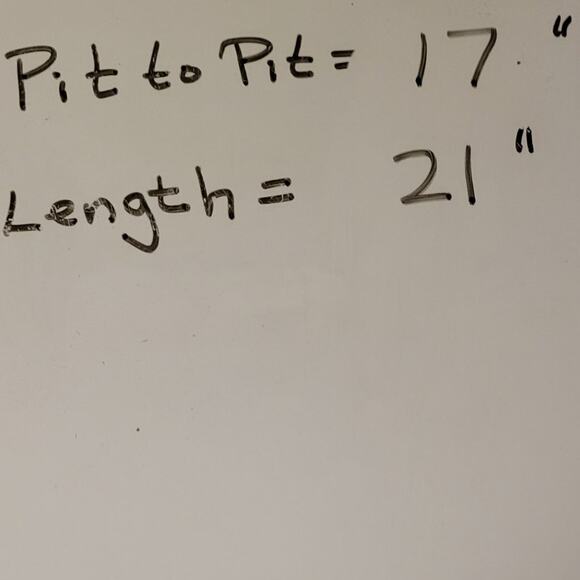 Pit to Pit = 17 "
Length = 21 "